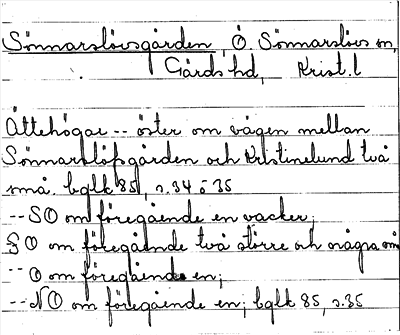 Sönnarslövsgården, Ö. Sönnarslövs sn,
Gärds hd, Krist. l
Ättehögar -- öster om vägen mellan
Sönnarslöfsgården och Kristinelund två
små. bglk 85, s. 34 o 35
-- SO om föregående en vacker;
SO om föregående två större och några små
-- O om föregående en;
-- NO om föregående en; bglk 85, s. 35